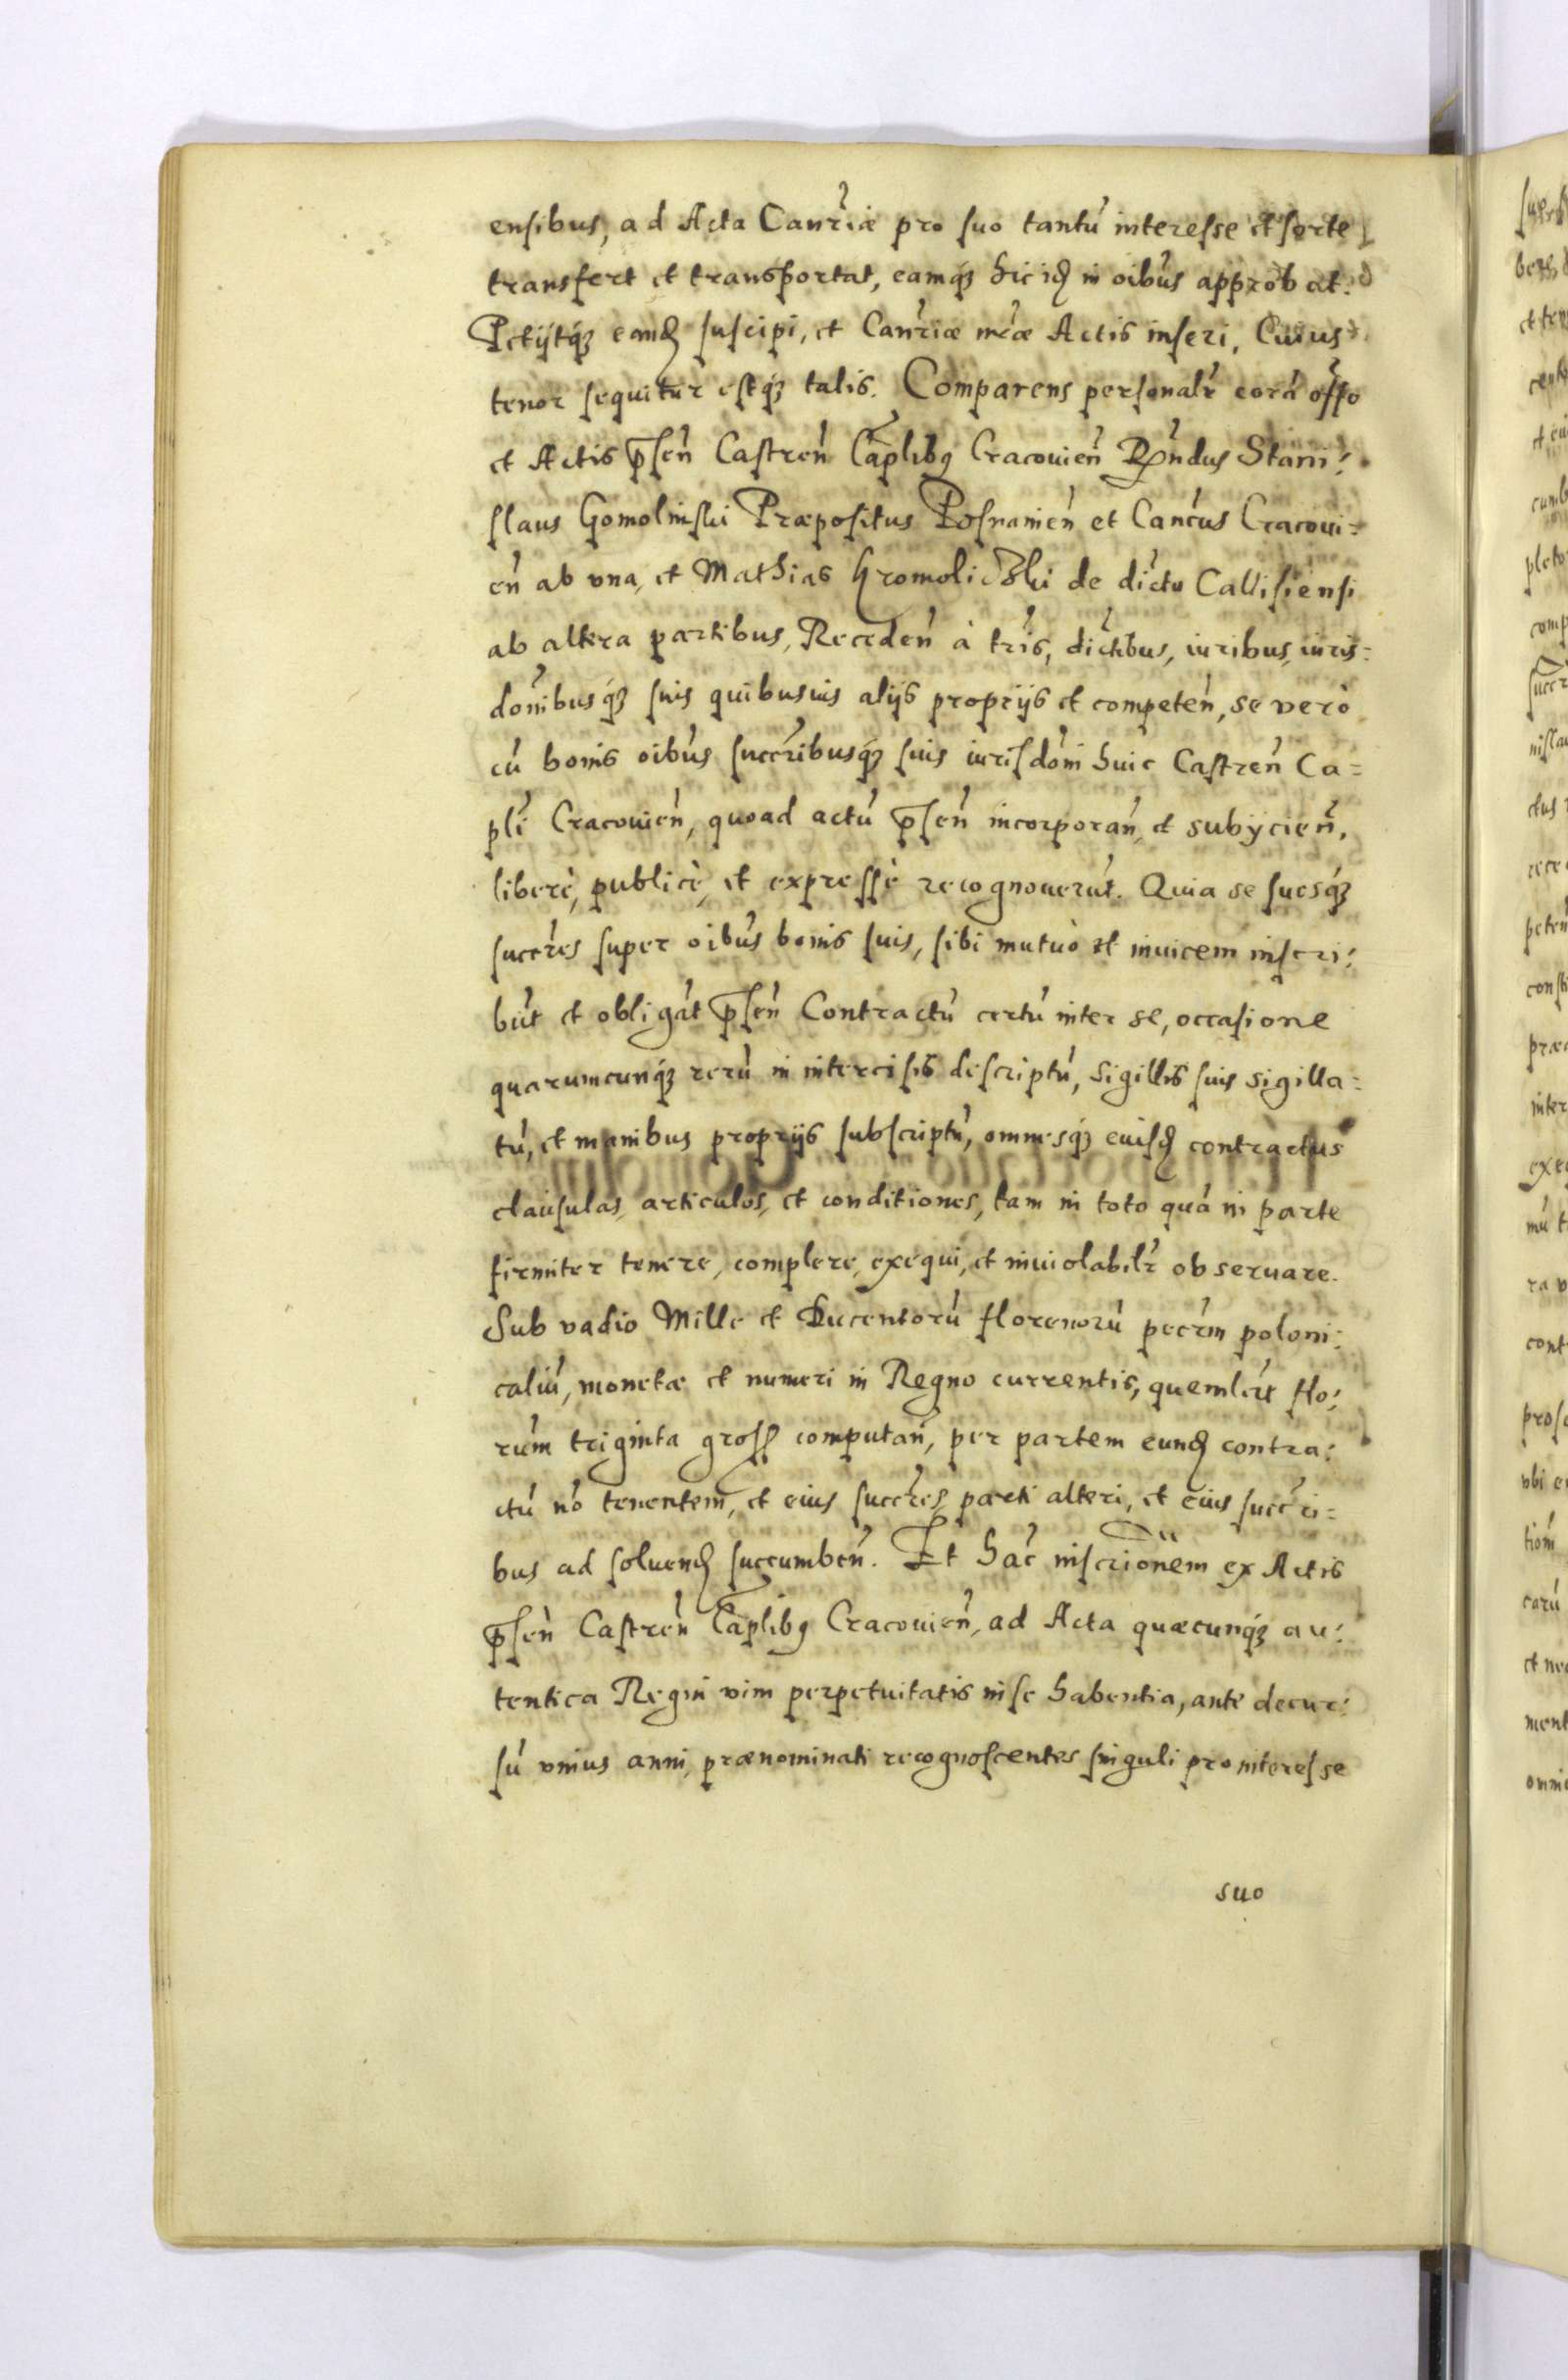 ensibus, ad Acta Canr̃iæ pro suo tantũ interesse et sorte
transfert et transportat, eamq́ꝫ hic iꝺ in oib́us approbat.
Petijtq́ꝫ eamꝺ suscipi, et Canr̃iæ mẽæ Actis inseri. Cuius
tenor sequitur estq́ꝫ talis. Comparens personalr̃ corã offo
et Actis p̃sẽn Castreñ Cap̃libꝯ Cracouieñ Rñdus Stani:
slaus Gomolinski Præpositus Posnanieñ et Cañcus Cracoui=
eñ ab vna, et Mathias Gromoliczki de dictu Callisiensi
ab altera partibus, Recedeñ à tr̃is, dict̃ibus, iuribus, iuris:
dõnibusq́ꝫ suis quibusuis alijs proprijs et competeñ, se verò
cũ bonis oib́us succr̃ibusq́ꝫ suis iurisdõni huic Castreñ Ca=
pl̃i Cracouieñ, quoad actũ p̃señ incorporañ, et subijcieñ,
liberè, publicè, et expressè recognouerũt. Quia se suosq́ꝫ
succr̃es super oib́us bonis suis, sibi mutuò et inuicem inscri:
bũt et obligãt p̃señ Contractũ certũ inter se, occasione
quarumcunq́ꝫ rerũ in intercisis descriptũ, sigillis suis sigilla=
tũ, et manibus proprijs subscriptũ, omnesq́ꝫ euisꝺ contractus
clausulas, articulos, et conditiones, tam in toto quã in parte
firmiter tenere, complere, exequi, et inuiolabilr̃ obseruare.
Sub vadio Mille et Ducentorũ florenorũ pecr̃m poloni:
caliũ, monetæ et numeri in Regno currentis, quemlt̃ flo:
rum̃ triginta grosꝭ computañ, per partem eunꝺ contra:
ctũ nõ tenentem, et eius succr̃es, parti alteri, et eius succr̃i=
bus ad soluenꝺ succumbeñ. Et hãc inscriõnem ex Actis
p̃señ Castreñ Cap̃libꝯ Cracouieñ, ad Acta quæcunq́ꝫ au:
tentica Regni vim perpetuitatis in se habentia, ante decur:
sũ vnius anni, prænominati recognoscentes singuli pro interesse
suo